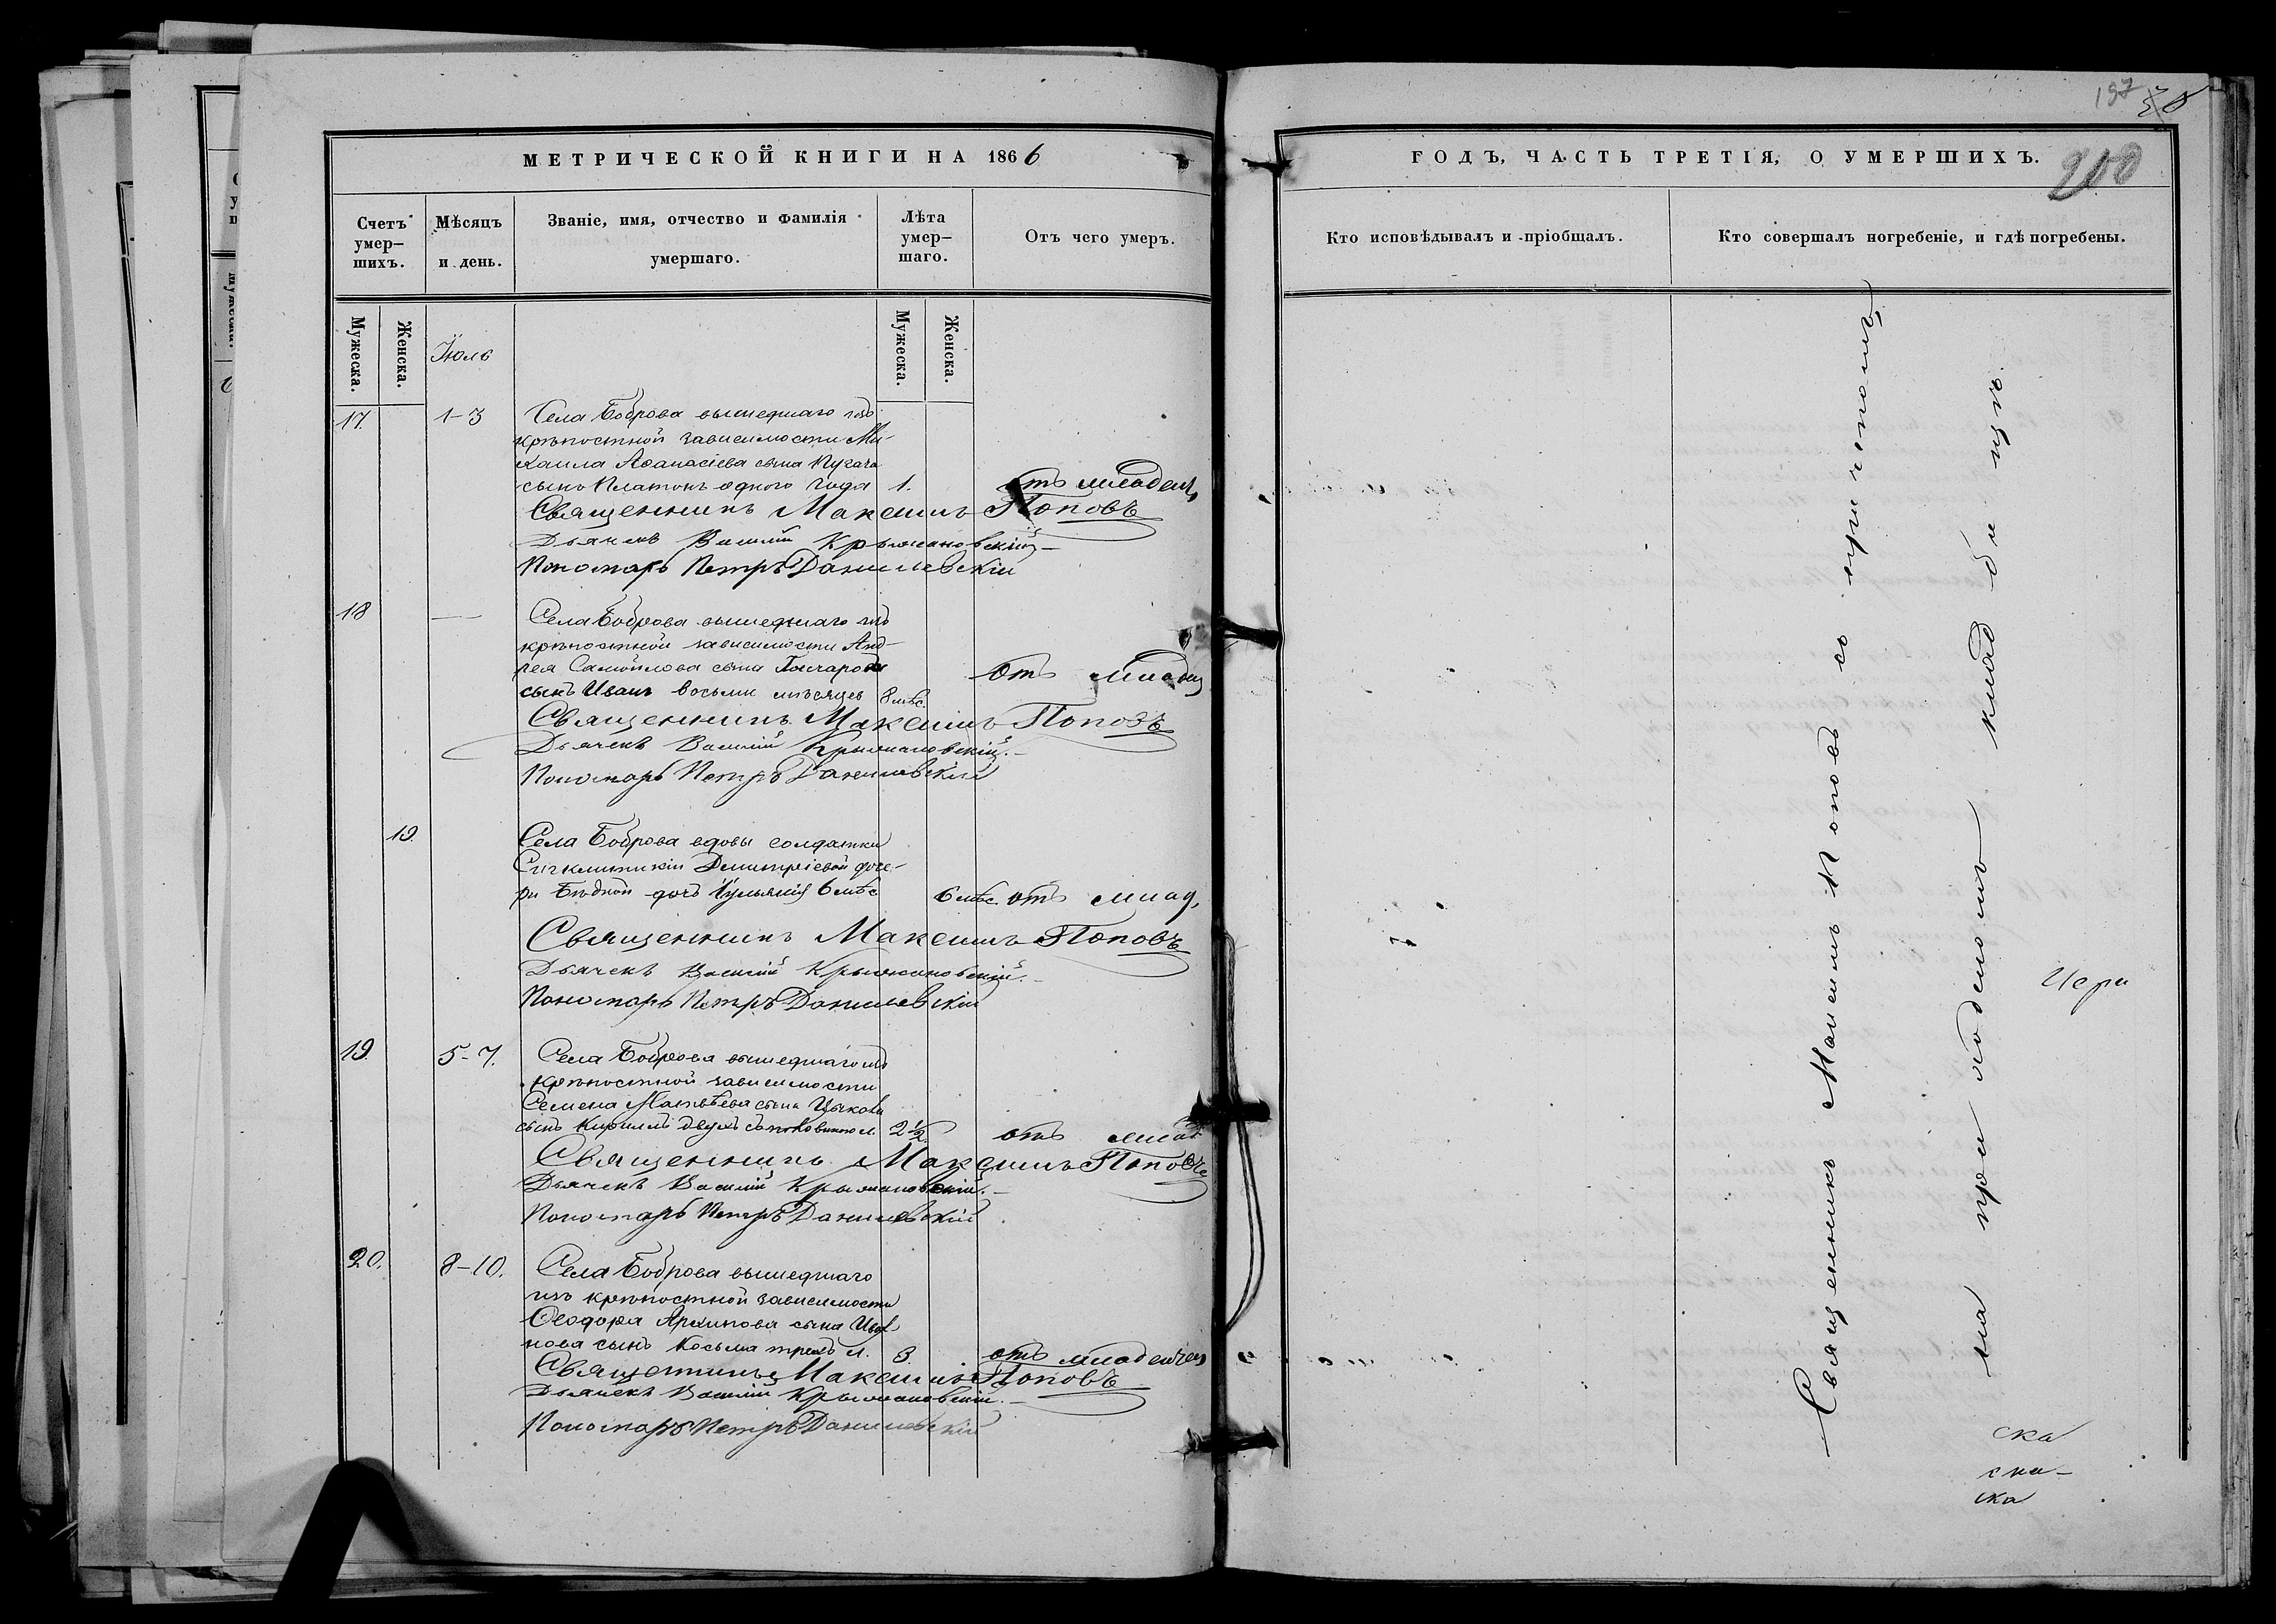 МЕТРИЧЕСКОЙ КНИГИ НА 1866
Счетъ умер–шихъ.
Мѣсяцъ и день.
Званіе, имя, отчество и фамилія умершаго.
Лѣта умер–шаго.
Отъ чего умеръ.
Мужеска.
Женска.
Іюль
Мужеска.
Женска.
17. 1-3 Села Боброва вышедшаго изъ
крѣпостной зависимости Ми-
хаила Аѳанасіева сына Пугача
сынъ Платонъ одного года 1. отъ младенч,
Священникъ Максимъ Поповъ
Дьячекъ Василій Крыжановскій
Пономарь Петръ Данилевскій
18 — Села Боброва вышедшаго изъ
крѣпостной зависимости Анд-
рея Самойлова сына Гончарова
сынъ Иванъ восьми мѣсяцев 8 мѣс. отъ младен
Священникъ Максимъ Поповъ
Дьячекъ Василій Крыжановскій.
Пономарь Петръ Данилевскій
19. Села Боброва вдовы солдатки
Сигклитикіи Димитріевой доче-
ри Бѣдной дочь Іуліанія 6 мѣс 6 мѣс. отъ млад,
Священникъ Максимъ Поповъ
Дьячекъ Василій Крыжановскій.
Пономарь Петръ Данилевскій
19. 5-7. Села Боброва вышедшаго изъ
крѣпостной зависимости
Семена Матвѣева сына
сынъ Кириллъ двухъ съ половиною л 2½ отъ млад
Священникъ Максимъ Поповъ
Дьячекъ Василій Крыжановскій.
Пономарь Петръ Данилевскій
20. 8-10. Села Боброва вышедшаго
изъ крѣпостной зависимости
Ѳеодора Архипова сына Ива-
нова сынъ Косьма трехъ л. 3. отъ младенчес
Священникъ Максимъ Поповъ
Дьячекъ Василій Крыжановскій.
Пономарь Петръ Данилевскій
197 38
ГОДЪ, ЧАСТЬ ТРЕТІЯ, О УМЕРШИХЪ.
200
Кто исповѣдывалъ и пріобщалъ.
Кто совершалъ погребеніе, и гдѣ погребены.
Священникъ Максимъ Поповъ со причтомъ
на приходскомъ кладбищѣ.